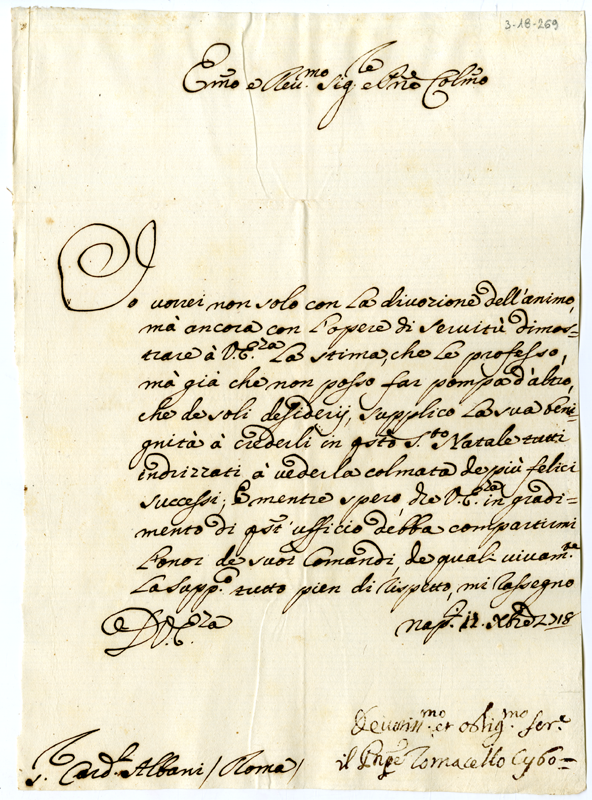 3-18-269
Em̃o e Reu.mo Sig.re e Pñe Colm̃o
Io vorrei non solo con la divozione dell'animo,
mà ancora con l'opere di servitù dimos=
trare à V.E.za la stima, che le professo,
mà già che non posso far pompa d'altro,
che de soli desiderij, supplico la sua beni
gnità à crederli in q̃sto S.to Natale tutti
indrizzati à vederla colmata de più felici
successi; E mentre spero che V.E.za in gradi=
mento di q̃st'ufficio debba compartirmi
l'onor de suoi Comandi, de quali vivam.te
la supp.o tutto pien di rispetto, mi rassegno
D V.E.za
Nap.li 11. Xbre 1718
Deuotiss.mo et oblig.mo ser.e
il Pñpe Tomacello Cybo=
S.r Card.l Albani / Roma /